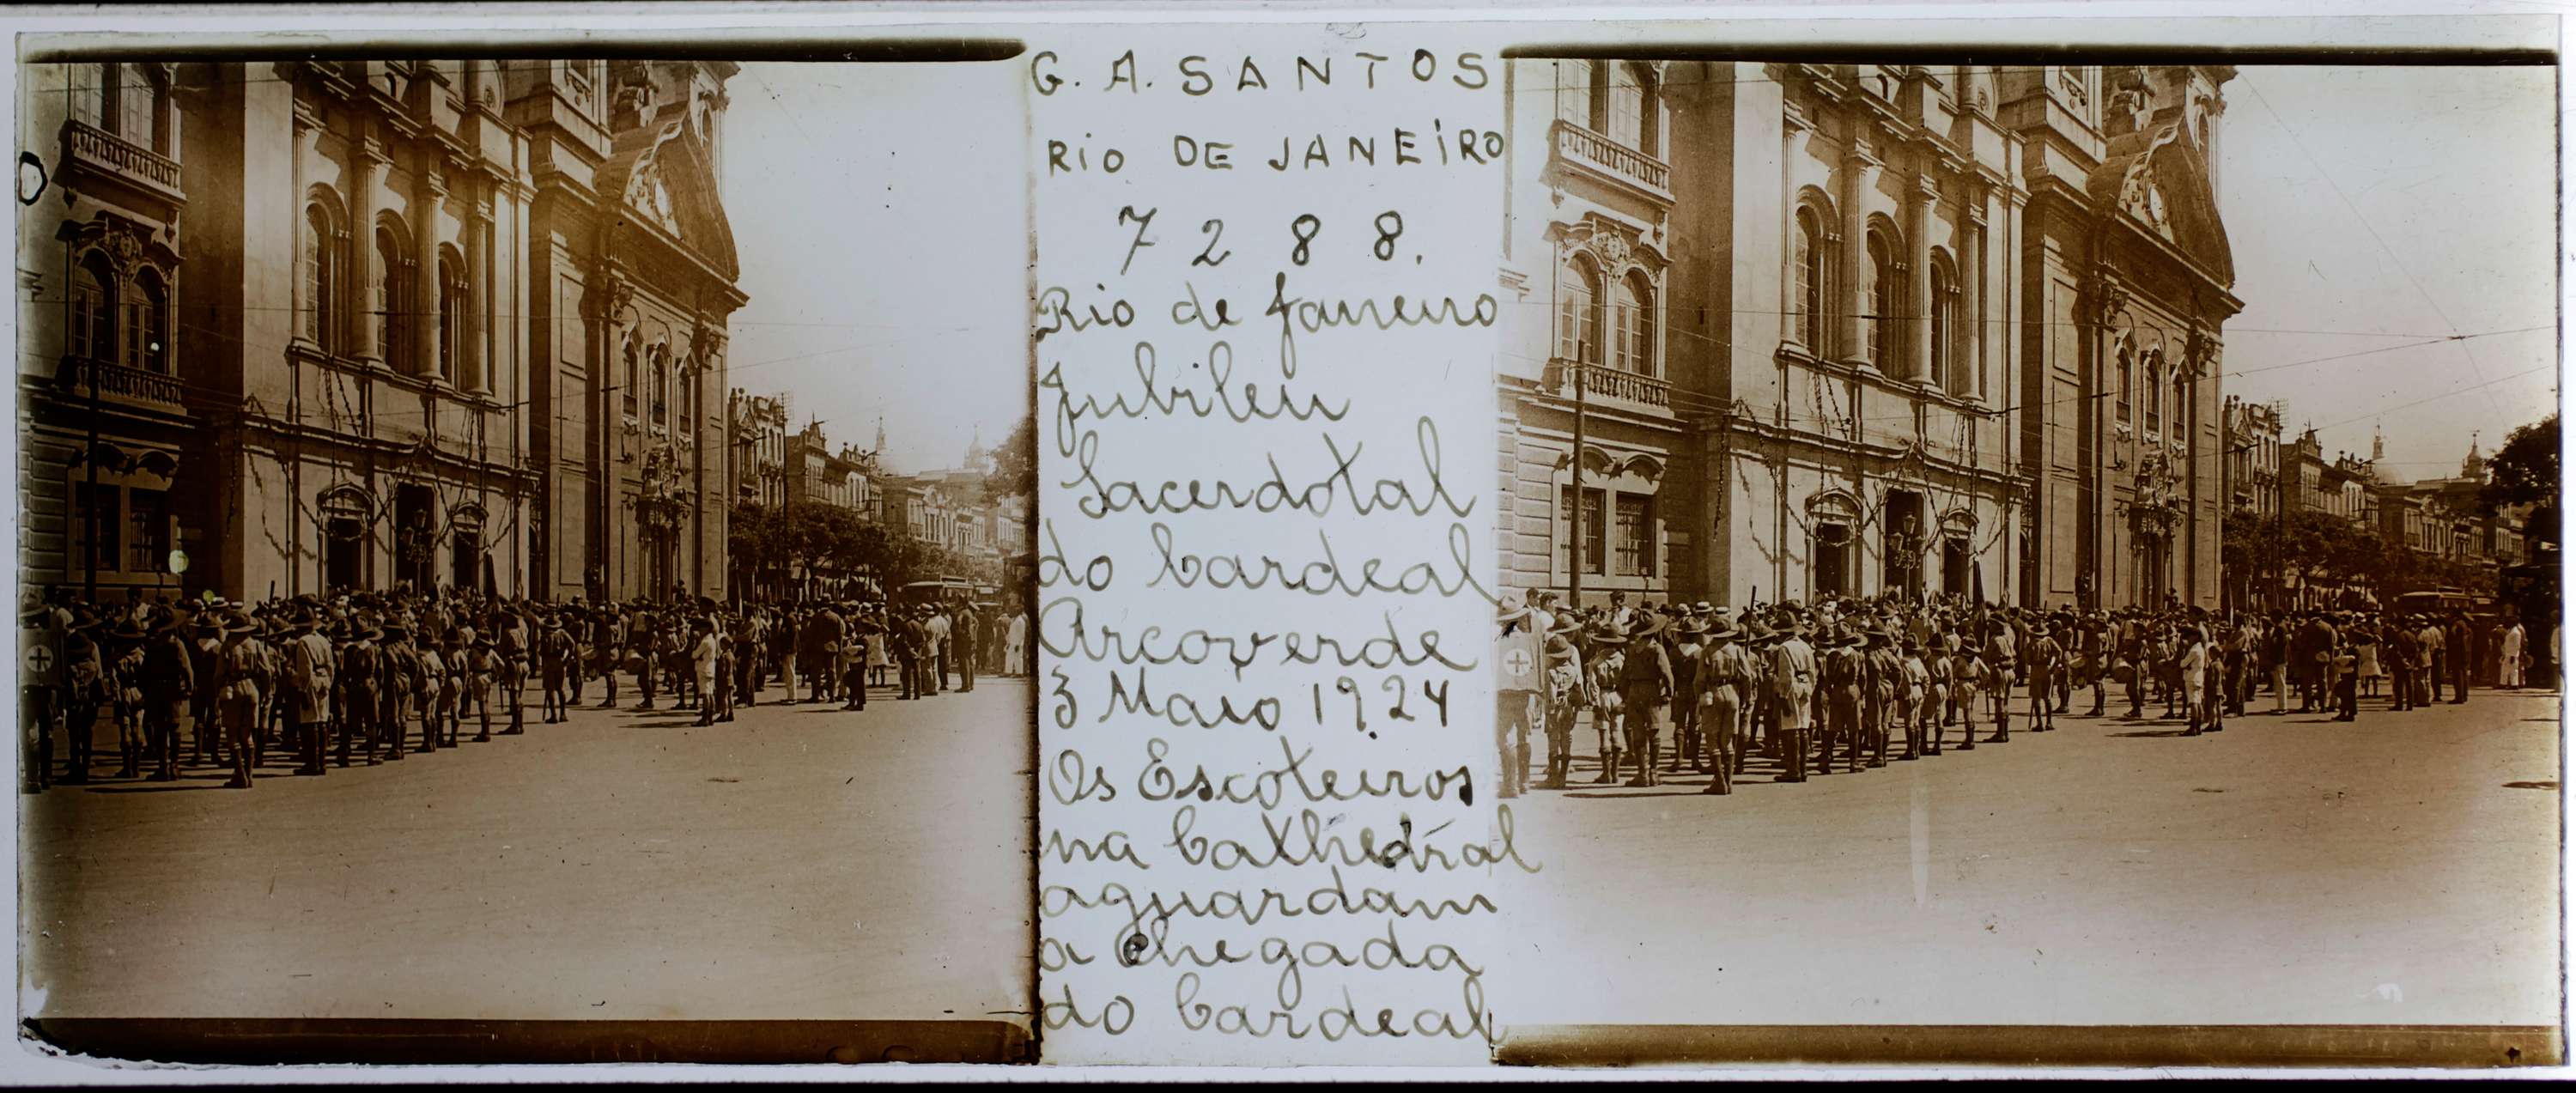 G. A. SANTOS
RIO DE JANEIRO
7288.
Rio de Janeiro
Jubileu
Sacerdotal
do Cardeal
Arcoverde
3 Maio 1924
Os Escoteiros
na Cathedral
aguardam
a Chegada
do Cardeal